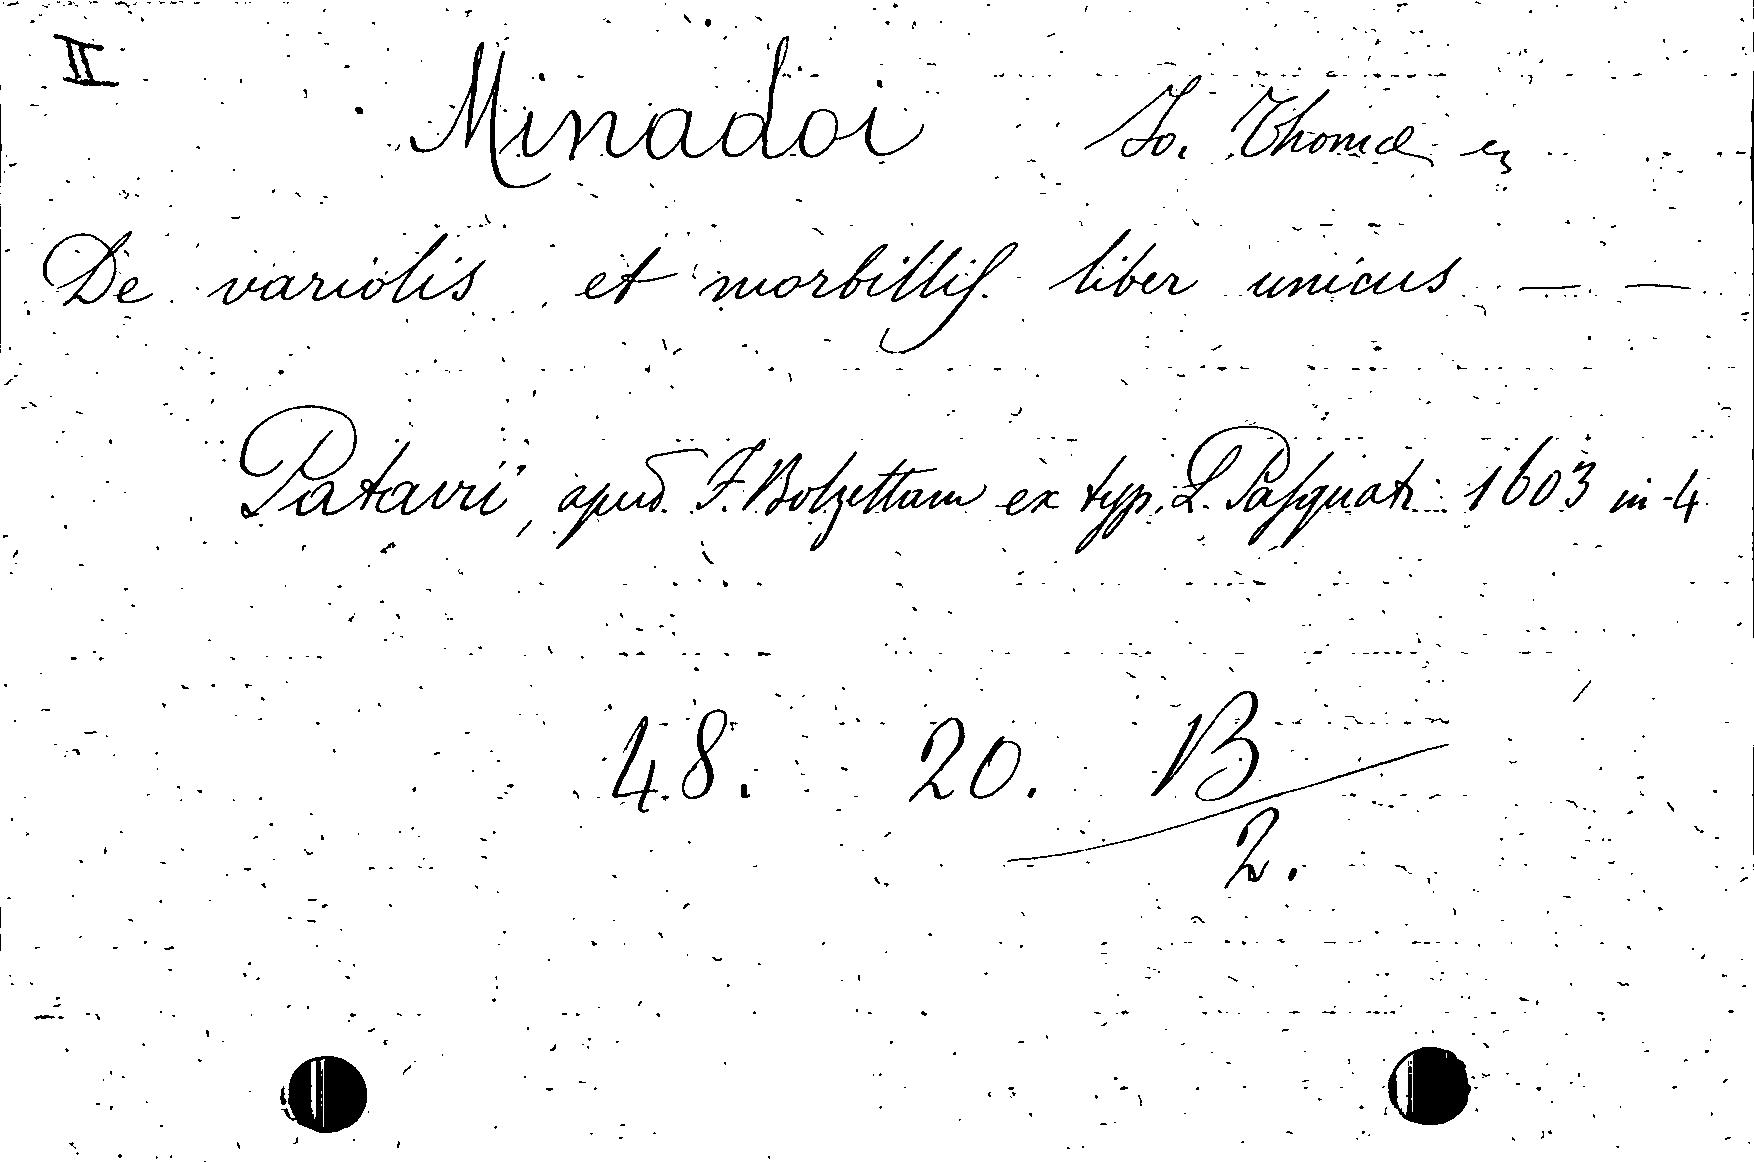 II
Minadoi Jo. Thomæ
De variolis et morbillis liber unicus — —
Patavii, apud F. Bolzettam ex typ. L. Pasquati 1603 in-4
48. 20. B
2.